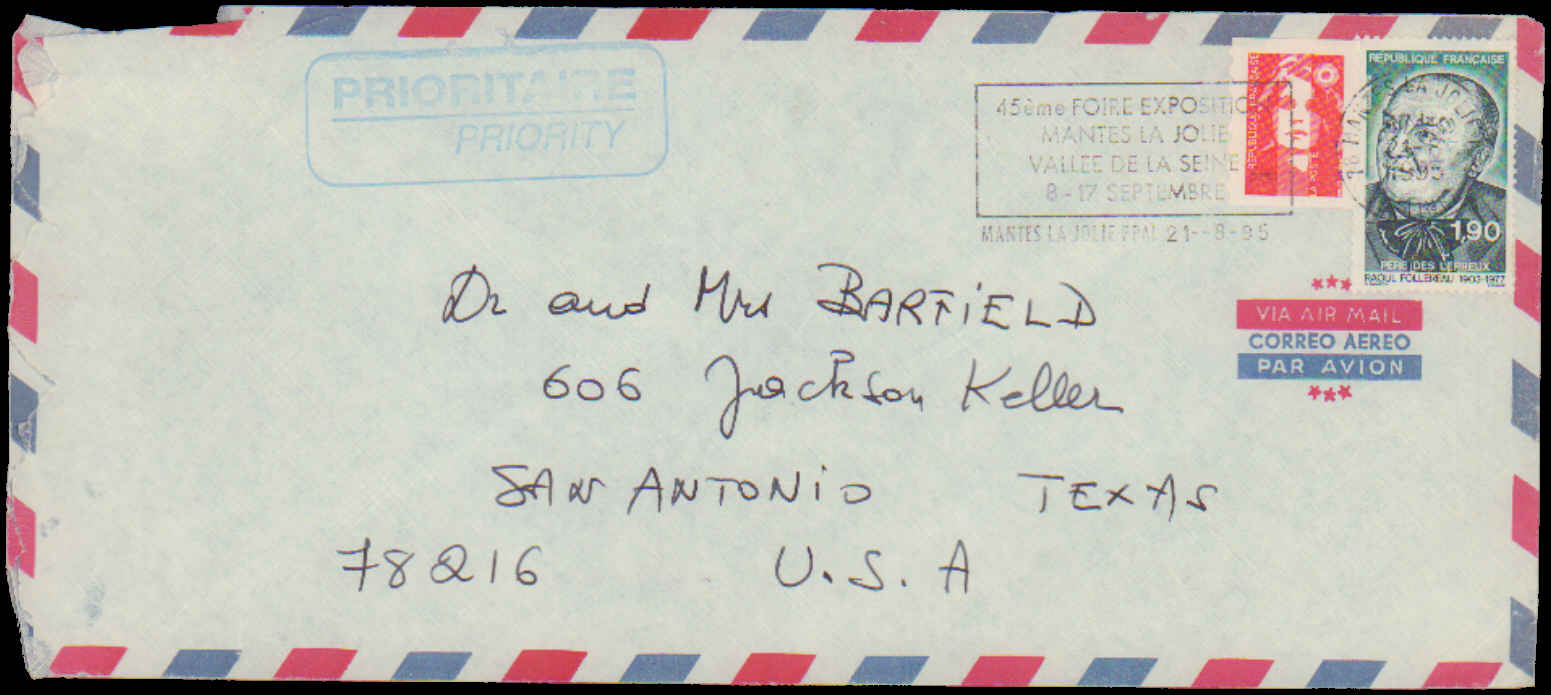 PRIORITAIRE
PRIORITY
45ème FOIRE EXPOSITION
MANTES LA JOLIE
VALLEE DE LA SEINE
8-17 SEPTEMBRE
MANTES LA JOLIE PPAL 21--8-95
REPUBLIQUE FRANÇAISE
LA POSTE
REPUBLIQUE FRANÇAISE
78 MANTES LA JOLIE
1995
1,90
PERE DES LEPREUX
RAOUL FOLLEREAU 1903-1977
VIA AIR MAIL
CORREO AEREO
PAR AVION
Dr and Mrs BARFiELD
606 Jackson Keller
SAN ANTONiO TEXAS
78216 U.S.A